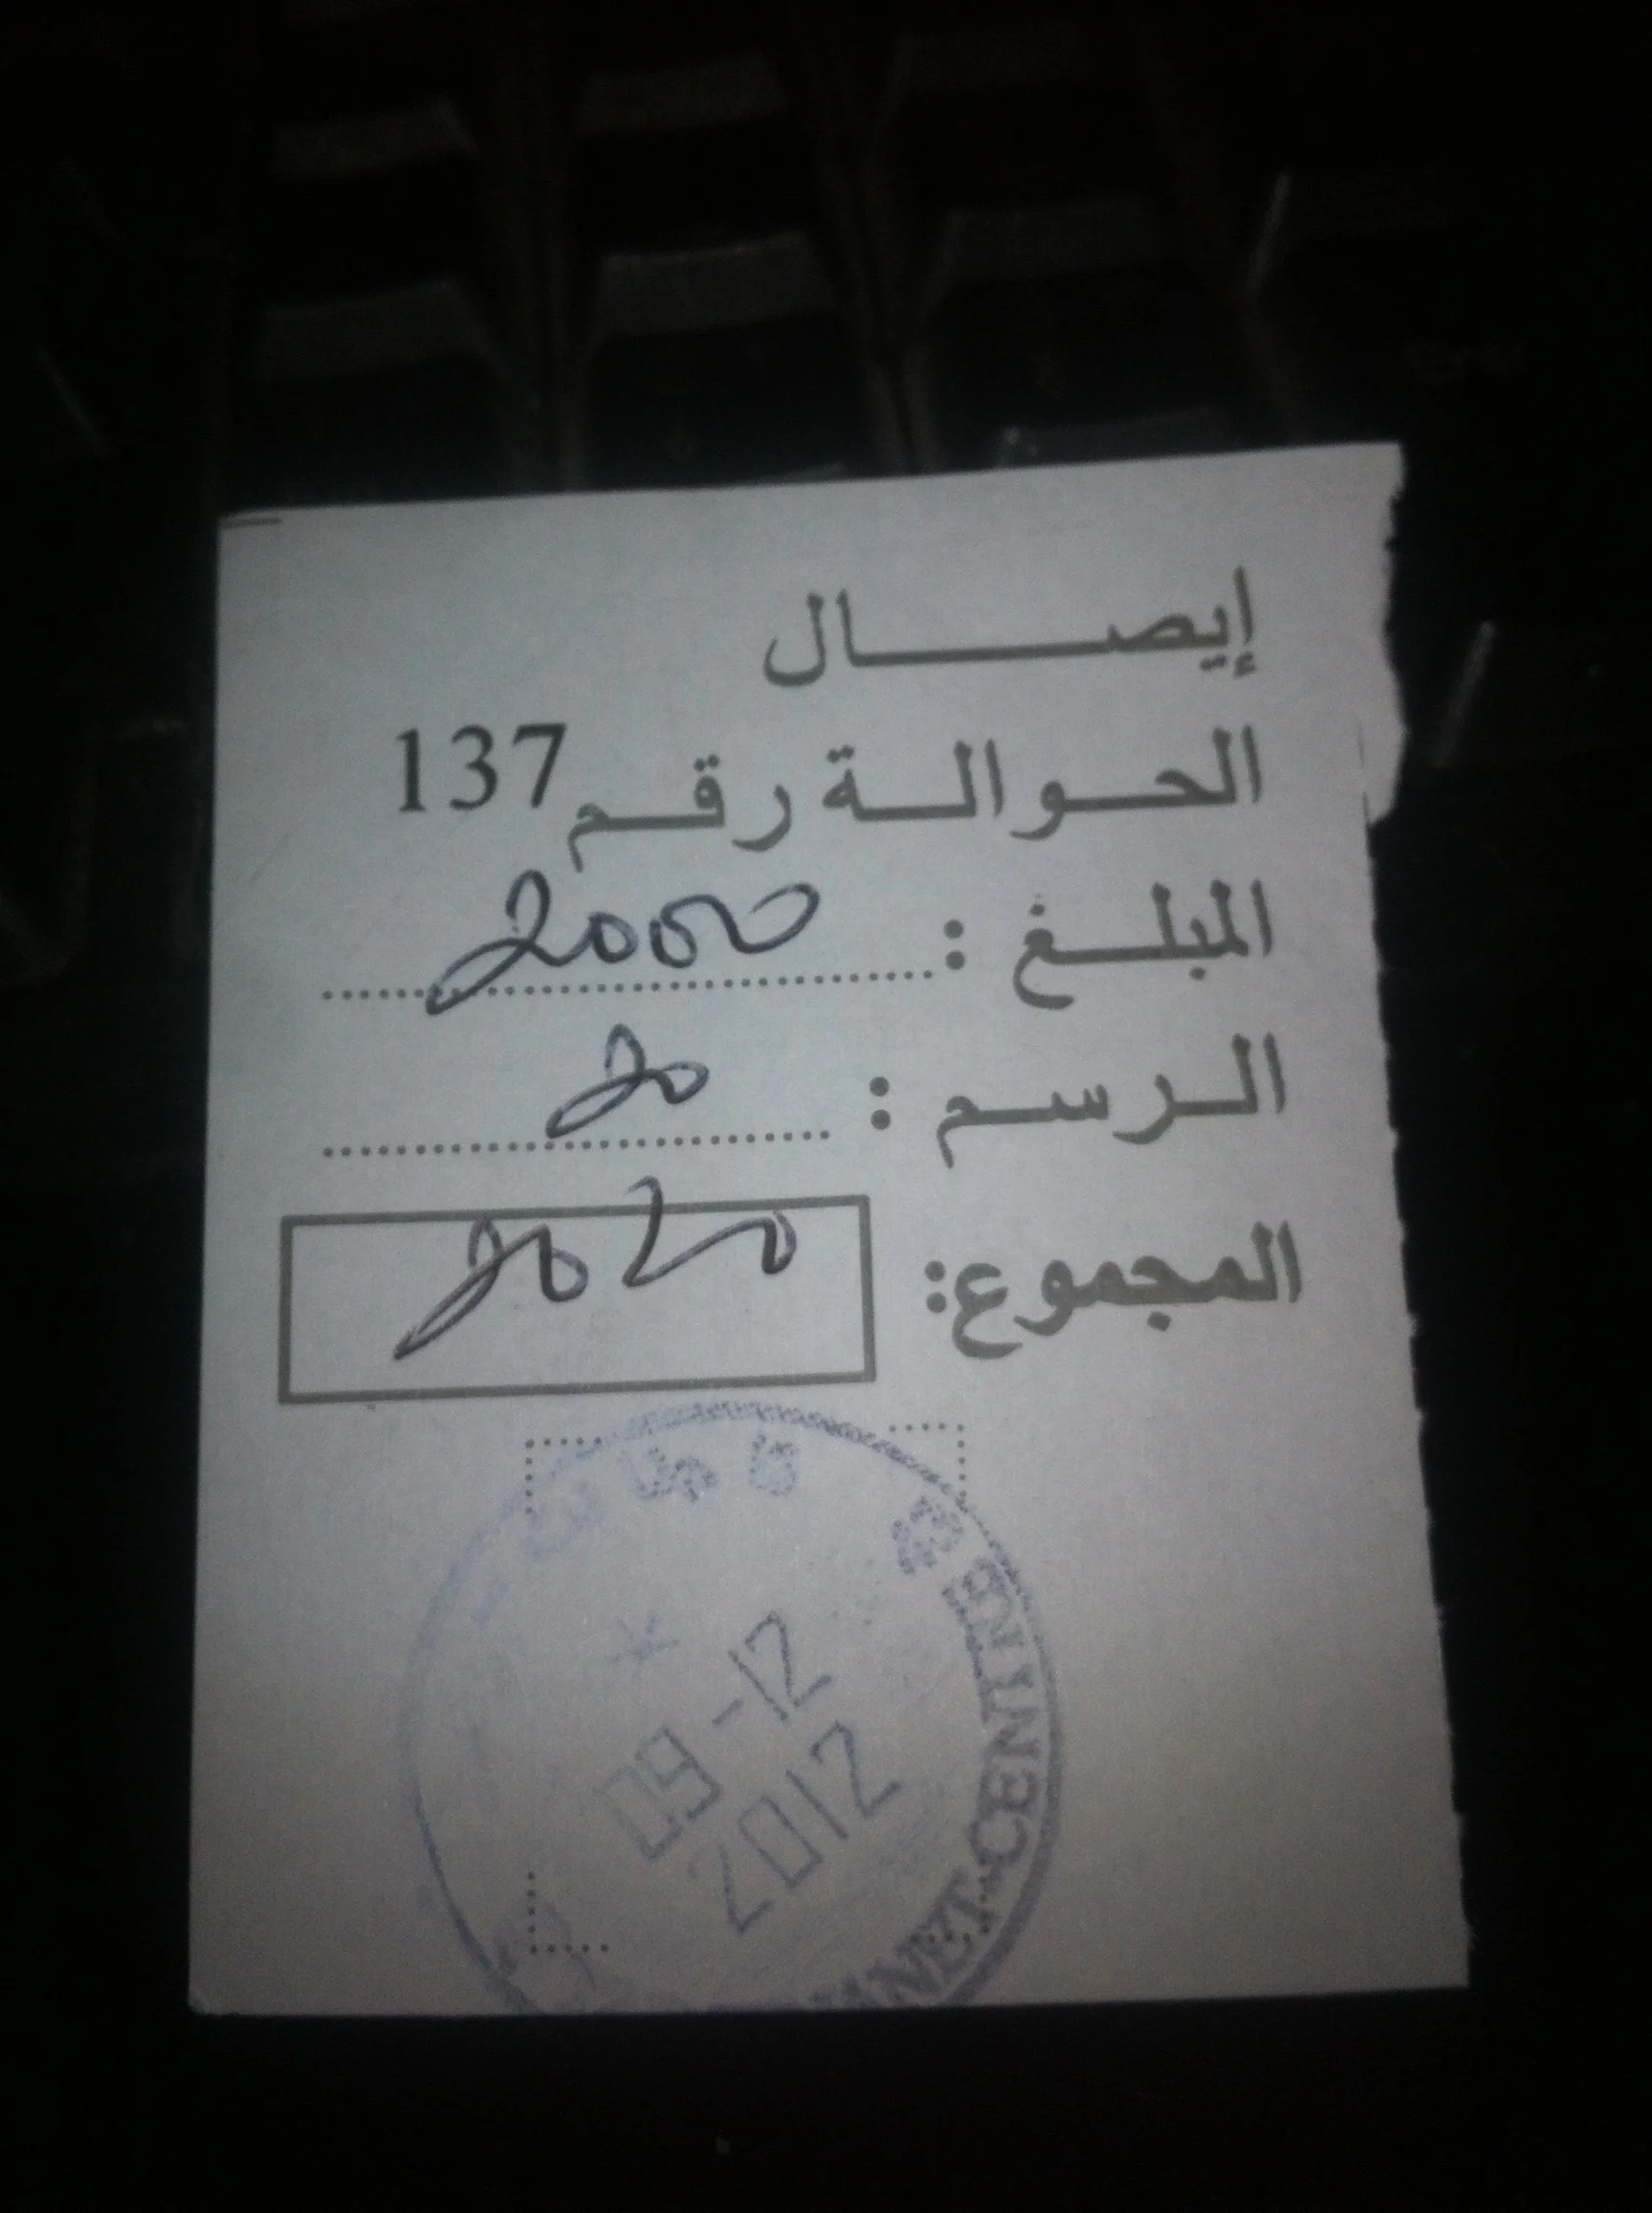 إيصال
الحوالة رقم 137
المبلغ : 2000
الرسم : 20
المجموع: 2020
09-12
2012